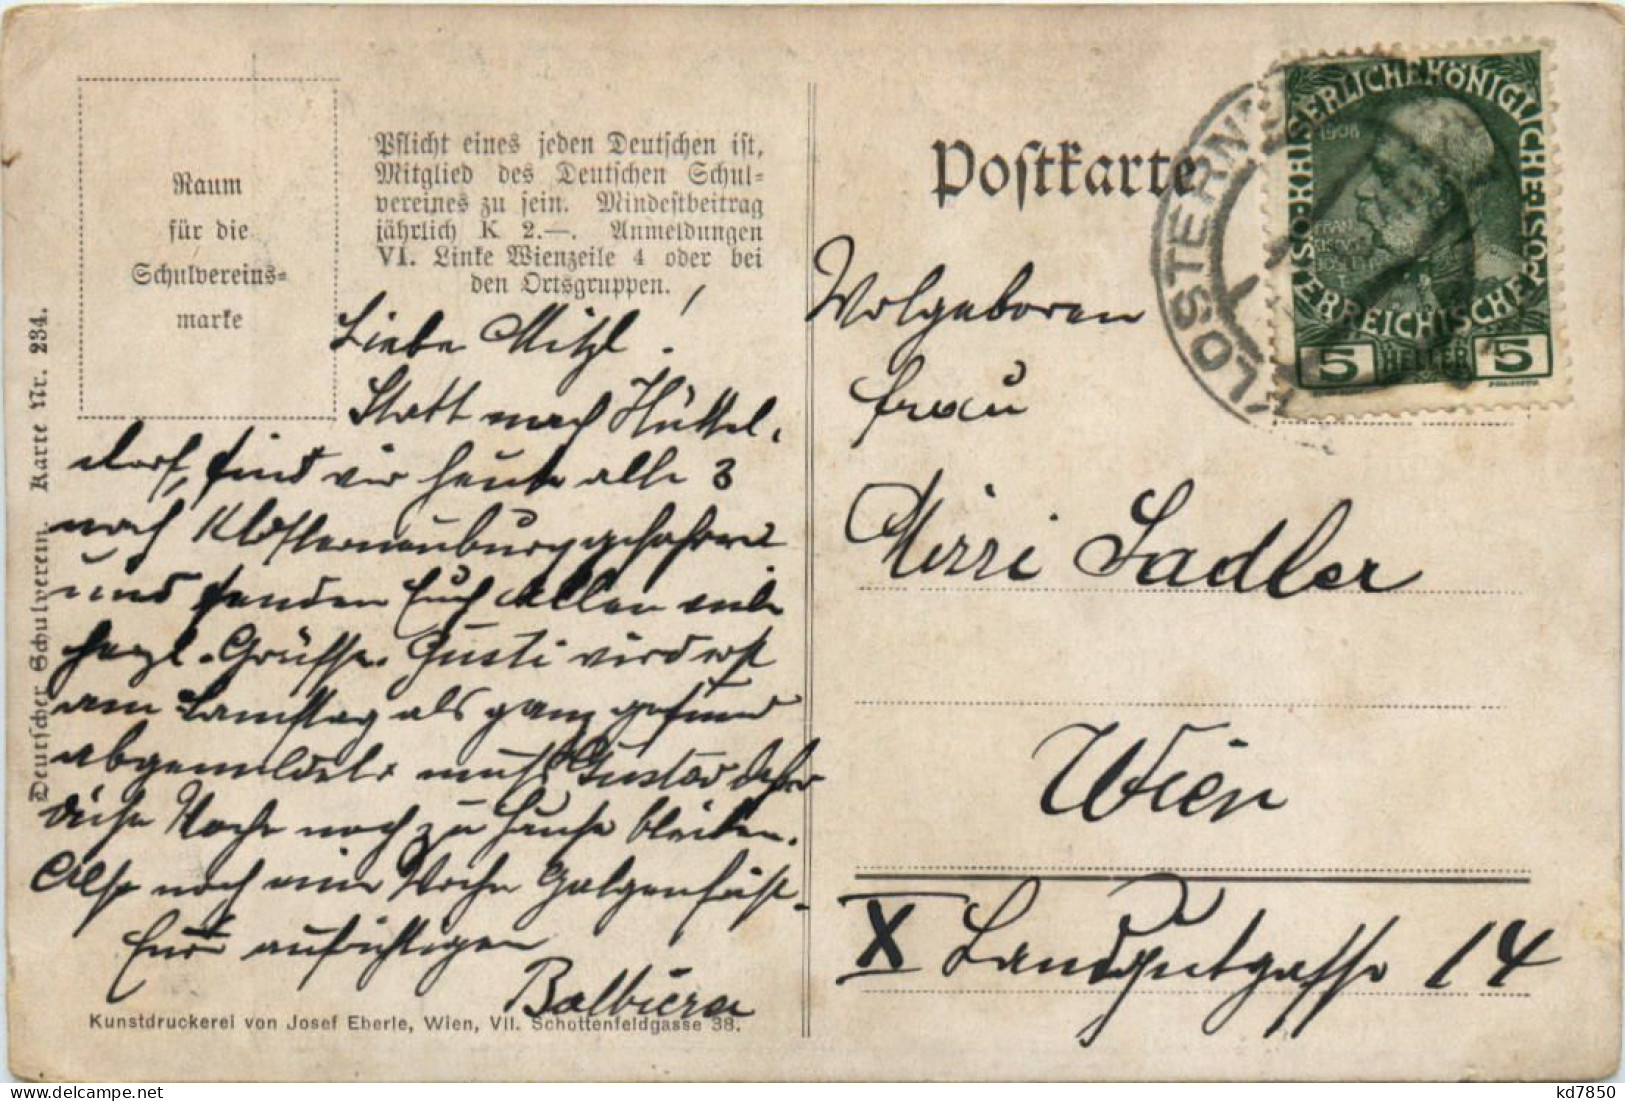 Raum
für die
Schulvereins-
marke
Pflicht eines jeden Deutschen ist,
Mitglied des Deutschen Schul-
vereines zu sein. Mindestbeitrag
jährlich K 2.—. Anmeldungen
VI. Linke Wienzeile 4 oder bei
den Ortsgruppen.
Deutscher Schulverein. Karte Nr. 234.
Liebe Mitzl!
Statt nach Hüttel-
dorf, sind wir heute alle 3
nach Klosterneuburg gefahren
und senden Euch Allen viele
herzl. Grüsse. Gusti wird erst
am Samstag als ganz gesund
abgemeldet, muß Gustav daher
diese Woche noch zu Hause bleiben.
Also noch eine Woche
Eure aufrichtigen
Balbierer
Kunstdruckerei von Josef Eberle, Wien, VII. Schottenfeldgasse 38.
Postkarte
KLOSTERN
KAISERLICHE KÖNIGLICHE
ÖSTERREICHISCHE
1908
5 HELLER 5
Wolgeboren
Frau
Mizzi Sadler
Wien
X Landgutgasse 14
kd7850